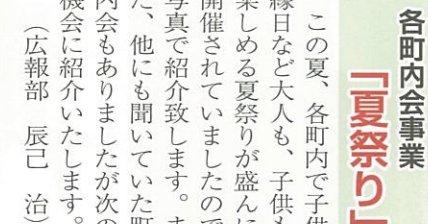 各町内会事業
「夏祭り」
この夏、各町内で子供
縁日など大人も、子供も
楽しめる夏祭りが盛んに
開催されていましたので
写真で紹介致します。ま
た、他にも聞いていた町
内会もありましたが次の
機会に紹介いたします。
（広報部 辰己 治）